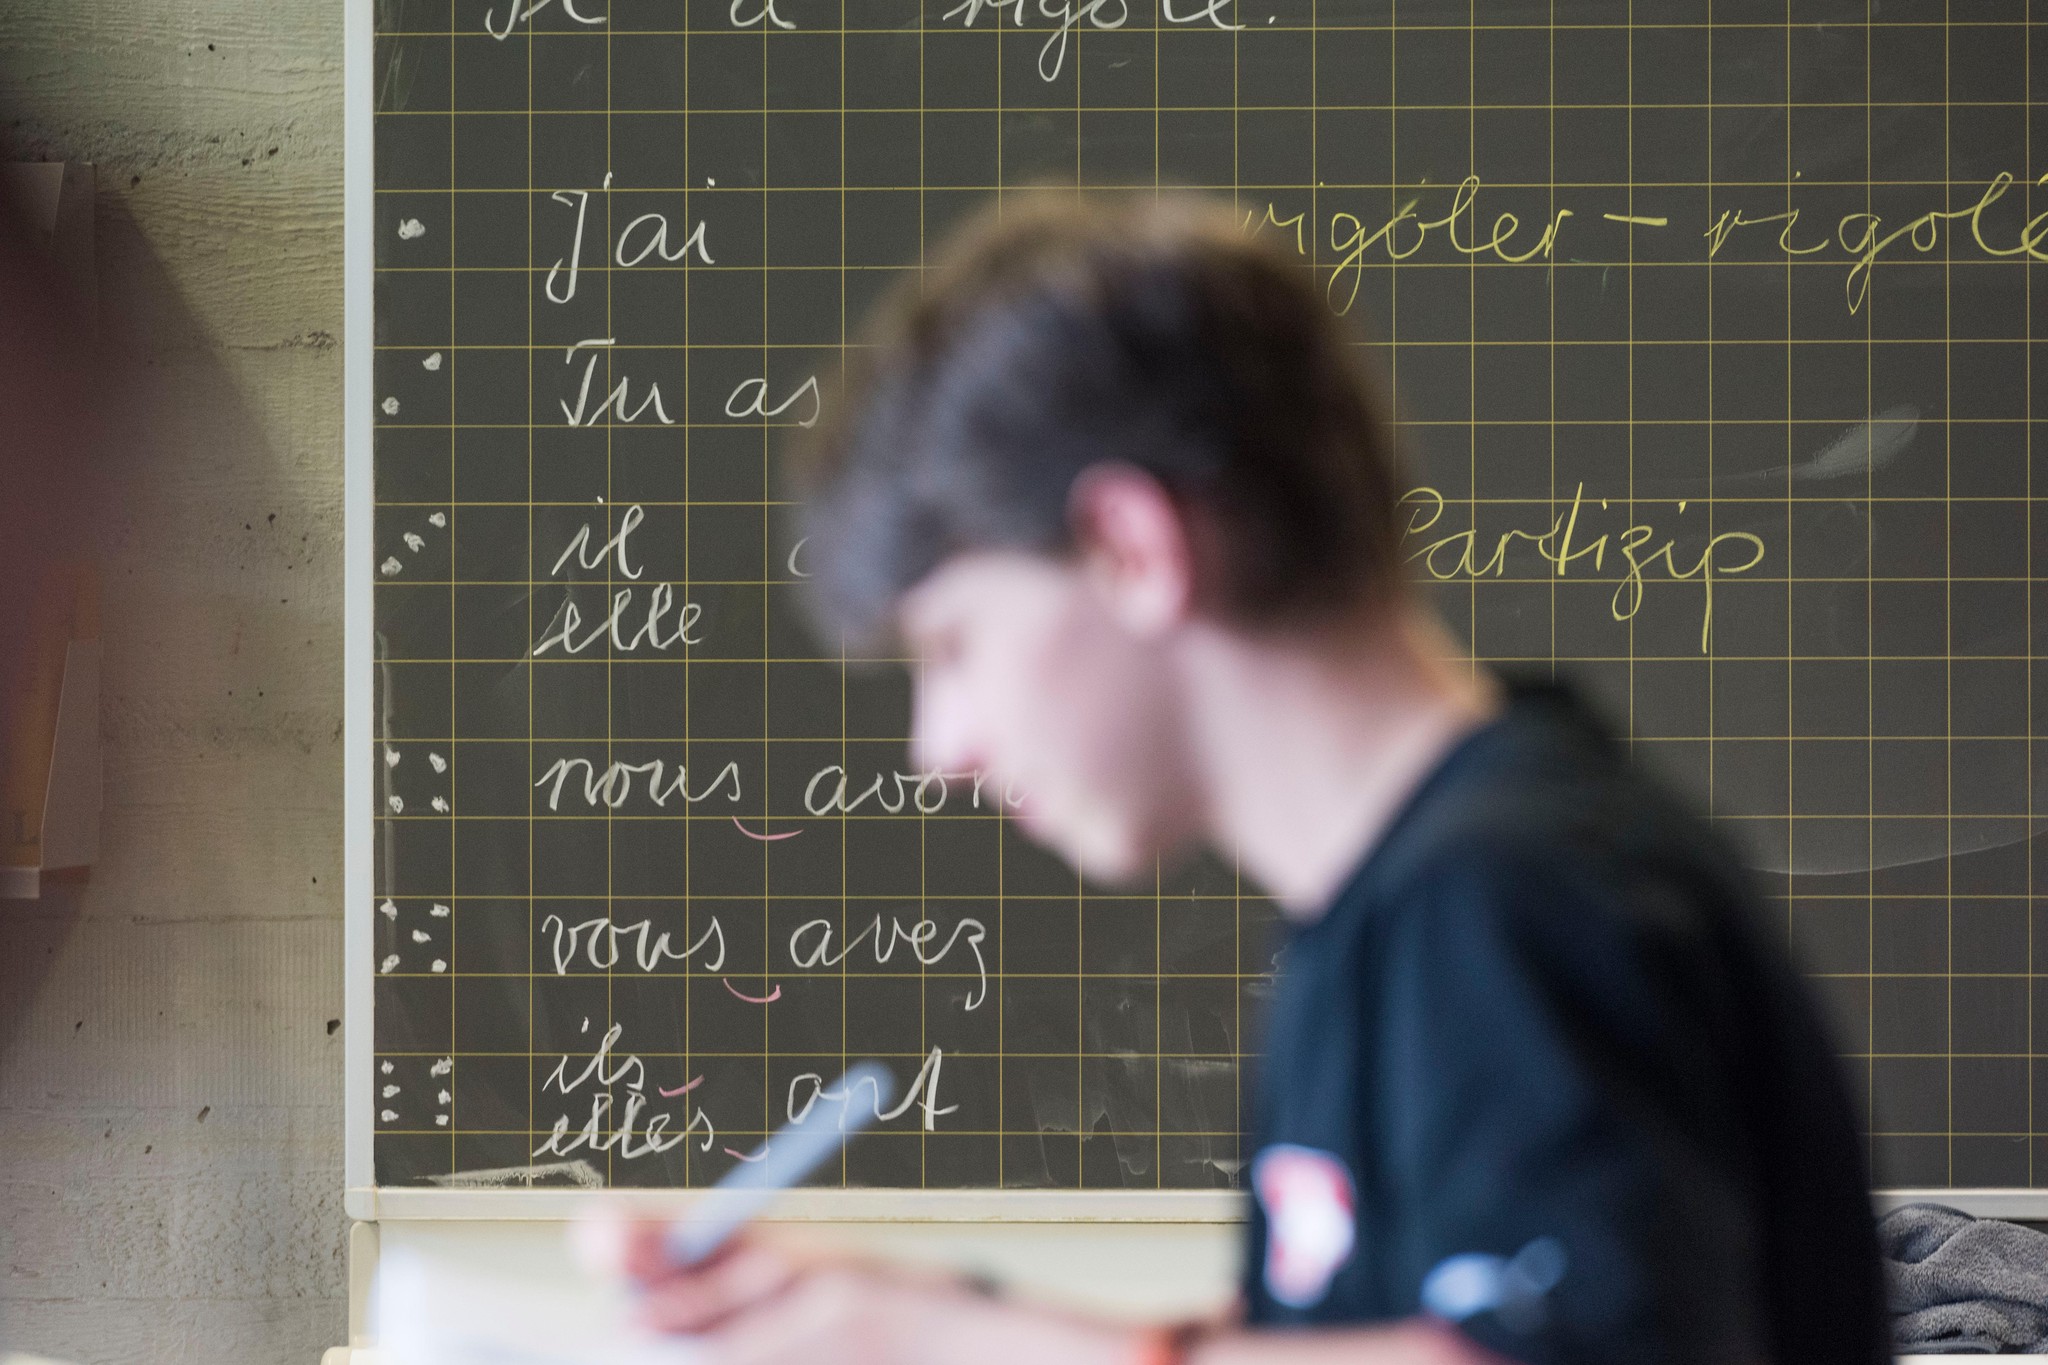 Il a rigolé.
J'ai rigoler – rigolé
Tu as
il Partizip
elle
nous avon
vous avez
ils
elles ont